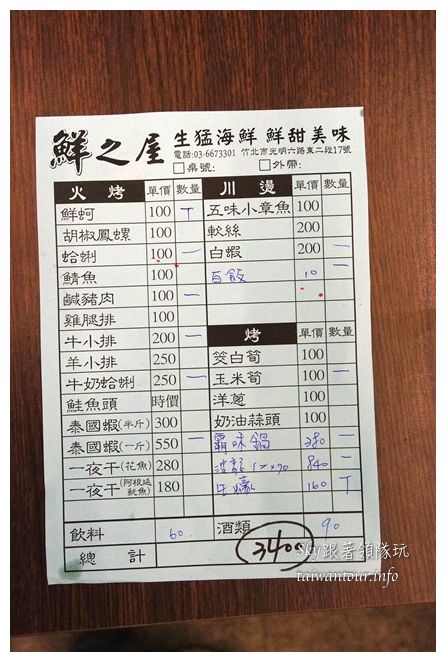 鮮之屋 生猛海鮮 鮮甜美味
電話:03-6673301 竹北市光明六路東二段17號
□桌號: □外帶:
火烤 單價 數量 川燙 單價 數量
鮮蚵 100 T 五味小章魚 100
胡椒鳳螺 100 軟絲 200
蛤蜊 100 一 白蝦 200 一
鯖魚 100 白飯 10 一
鹹豬肉 100 一
雞腿排 100
牛小排 200 一 烤 單價 數量
羊小排 250 筊白筍 100
牛奶蛤蜊 250 一 玉米筍 100 一
鮭魚頭 時價 洋蔥 100
泰國蝦(半斤) 300 奶油蒜頭 100
泰國蝦(一斤) 550 一 霸味鍋 380 一
一夜干(花魚) 280 840 一
一夜干(阿根廷魷魚) 180 生蠔 160 T
飲料 60 酒類 90
總計 3405
Sky跟著領隊玩
taiwantour.info